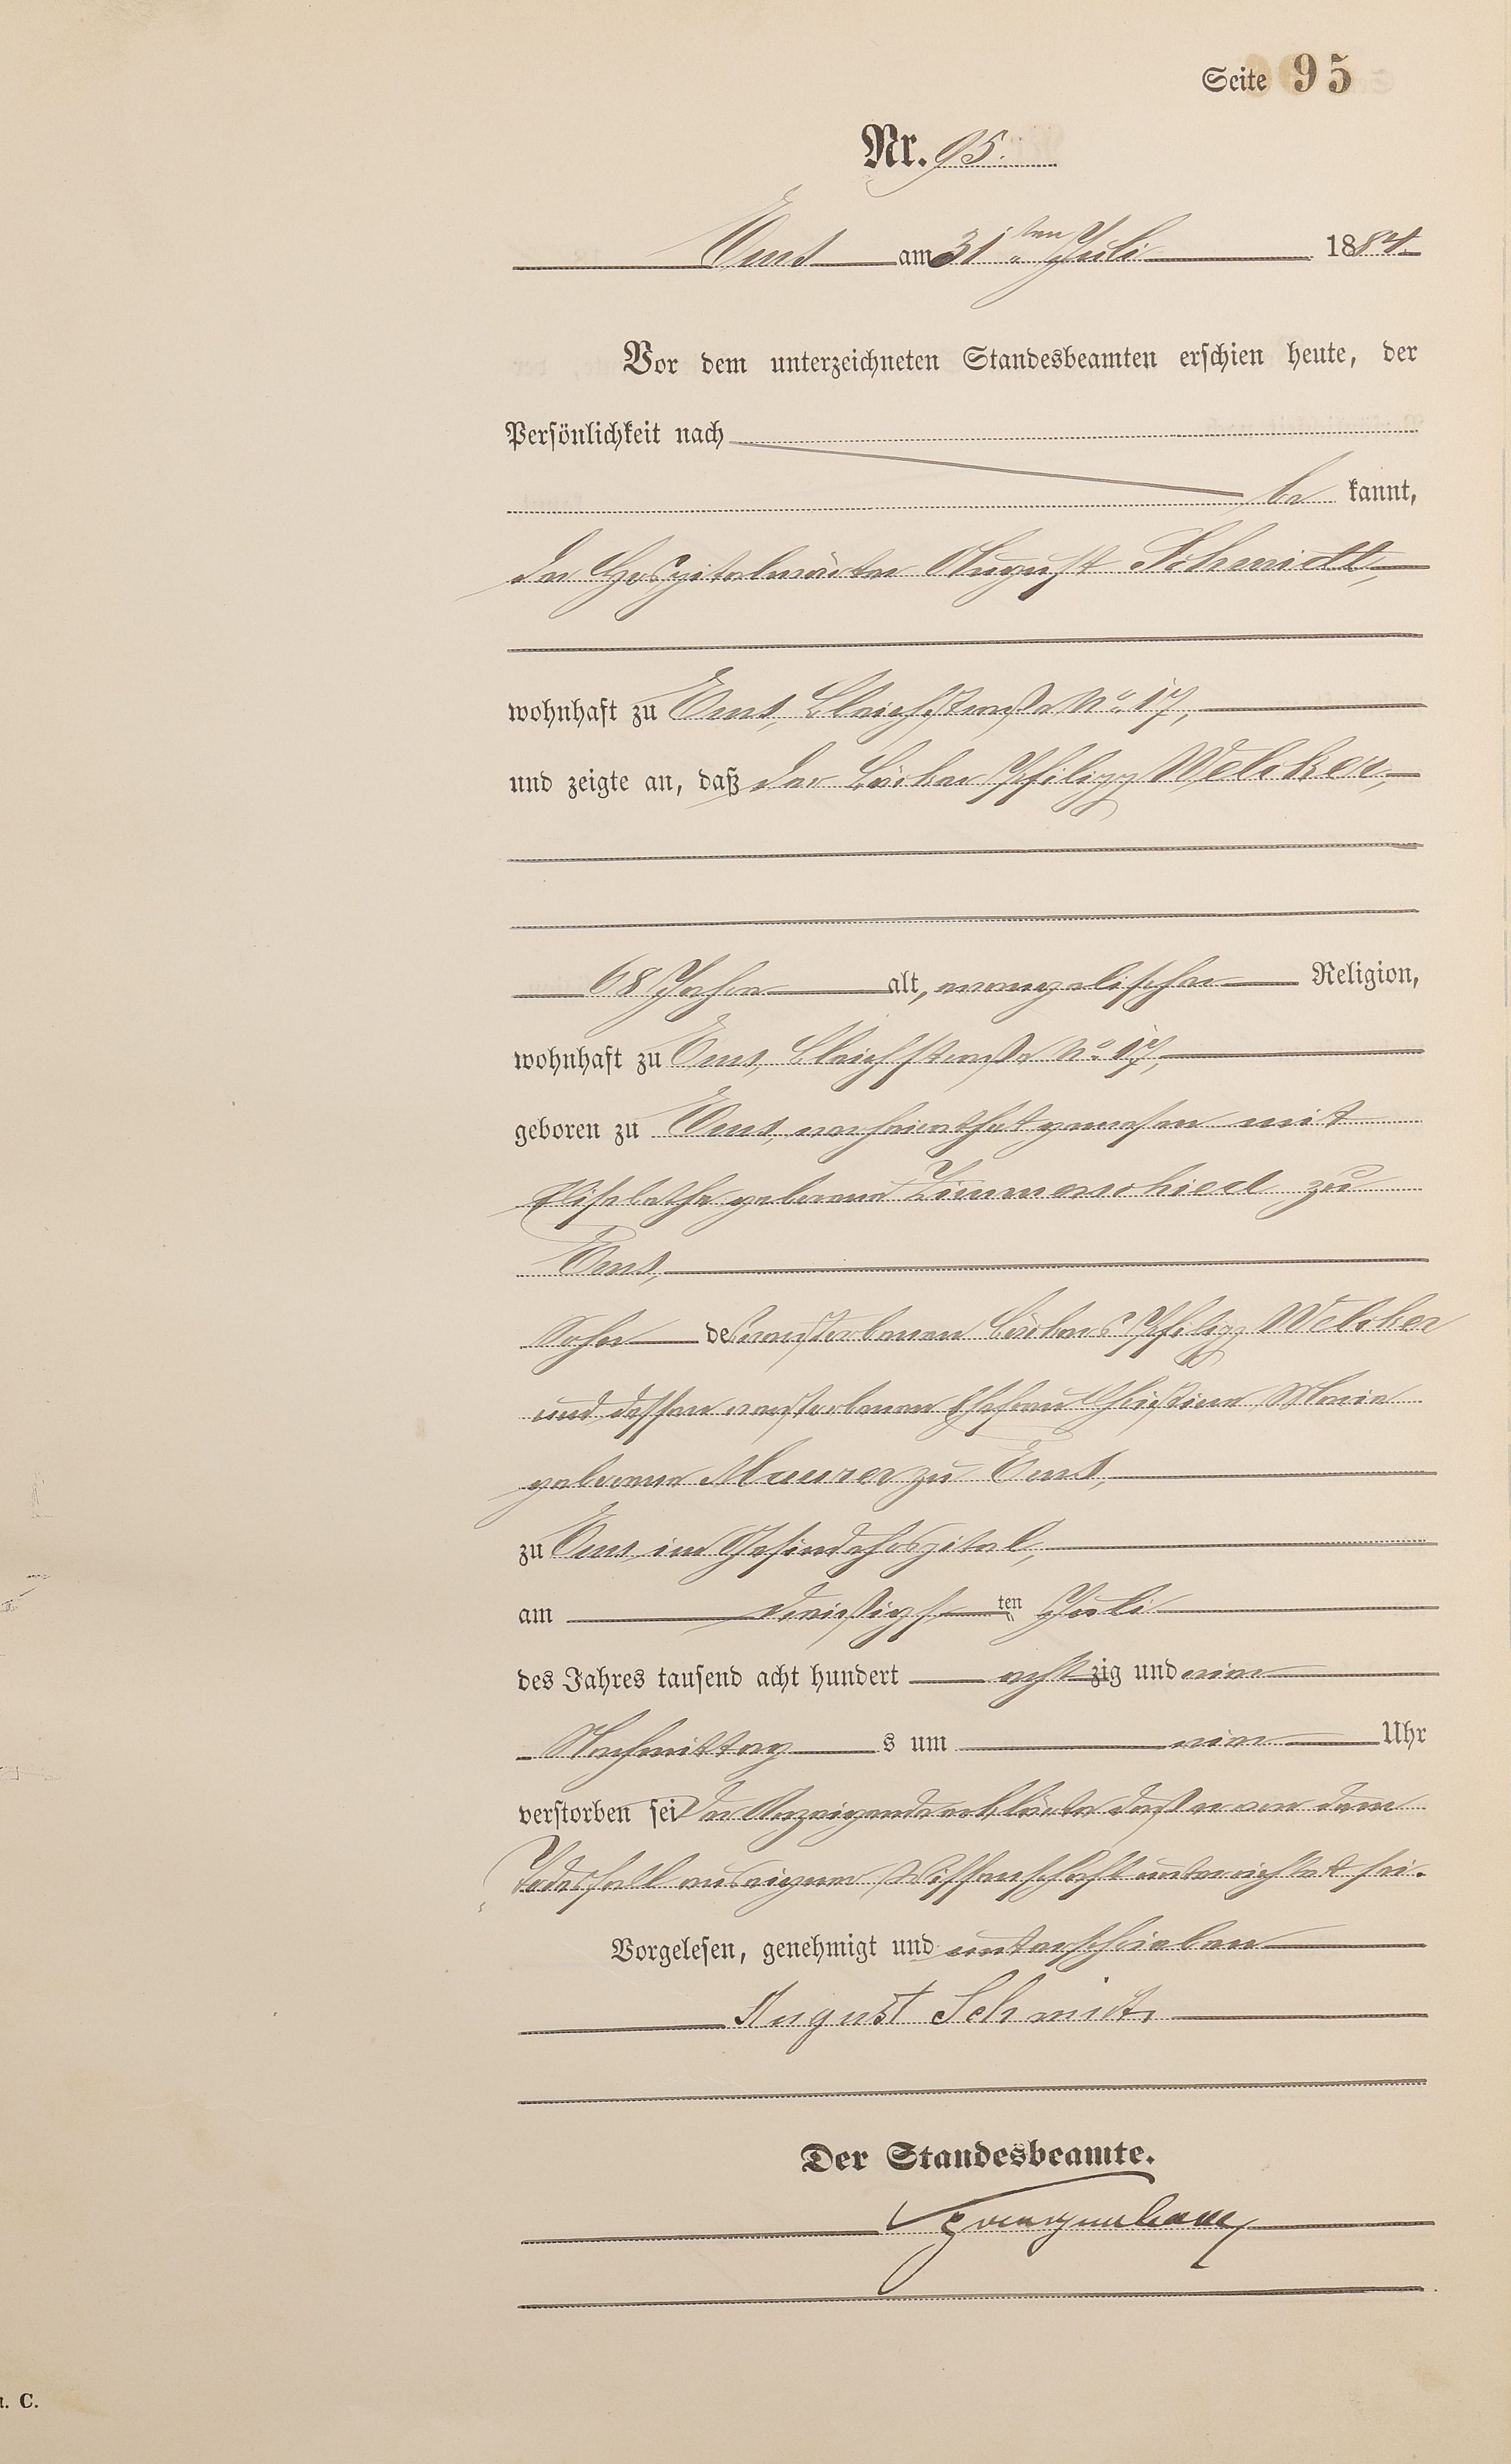 Seite 95
Nr. 95.
Ems am 31ten Juli 1884
Vor dem unterzeichneten Standesbeamten erschien heute, der
Persönlichkeit nach
be kannt,
der Hospitalwärter August Schmidt,
wohnhaft zu Ems, Bleichstraße No. 17,
und zeigte an, daß der Bäcker Philipp Welcker,
68 Jahre alt, evangelischer Religion,
wohnhaft zu Ems, Bleichstraße No. 17,
geboren zu Ems, verheirathet gewesen mit
Elisabetha geborene Zimmerschied zu
Ems,
Sohn des verstorbenen Bäckers Philipp Welcker
und dessen verstorbenen Ehefrau Christine Marie
geborene Maurer zu Ems,
zu Ems im Gesindehospital,
am dreißigsten Juli
des Jahres tausend acht hundert achtzig und vier
Nachmittags um vier Uhr
verstorben sei. Der Anzeigende erklärte daß er von dem
Todesfall aus eigener Wissenschaft unterrichtet sei.
Vorgelesen, genehmigt und unterschrieben
August Schmidt,
Der Standesbeamte.
C.